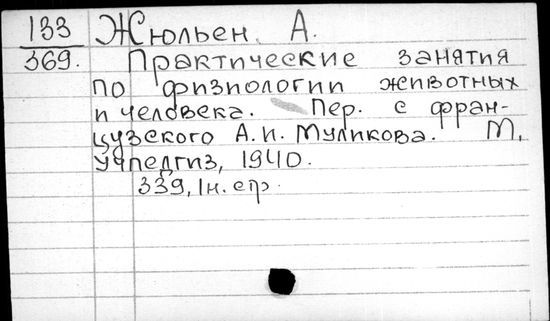 133 Жюльен, А.
369. Практические занятия
по физиологии животных
и человека. Пер. с фран-
цузского А.И. Муликова. М,
Учпедгиз, 1940.
339, 1н. стр.